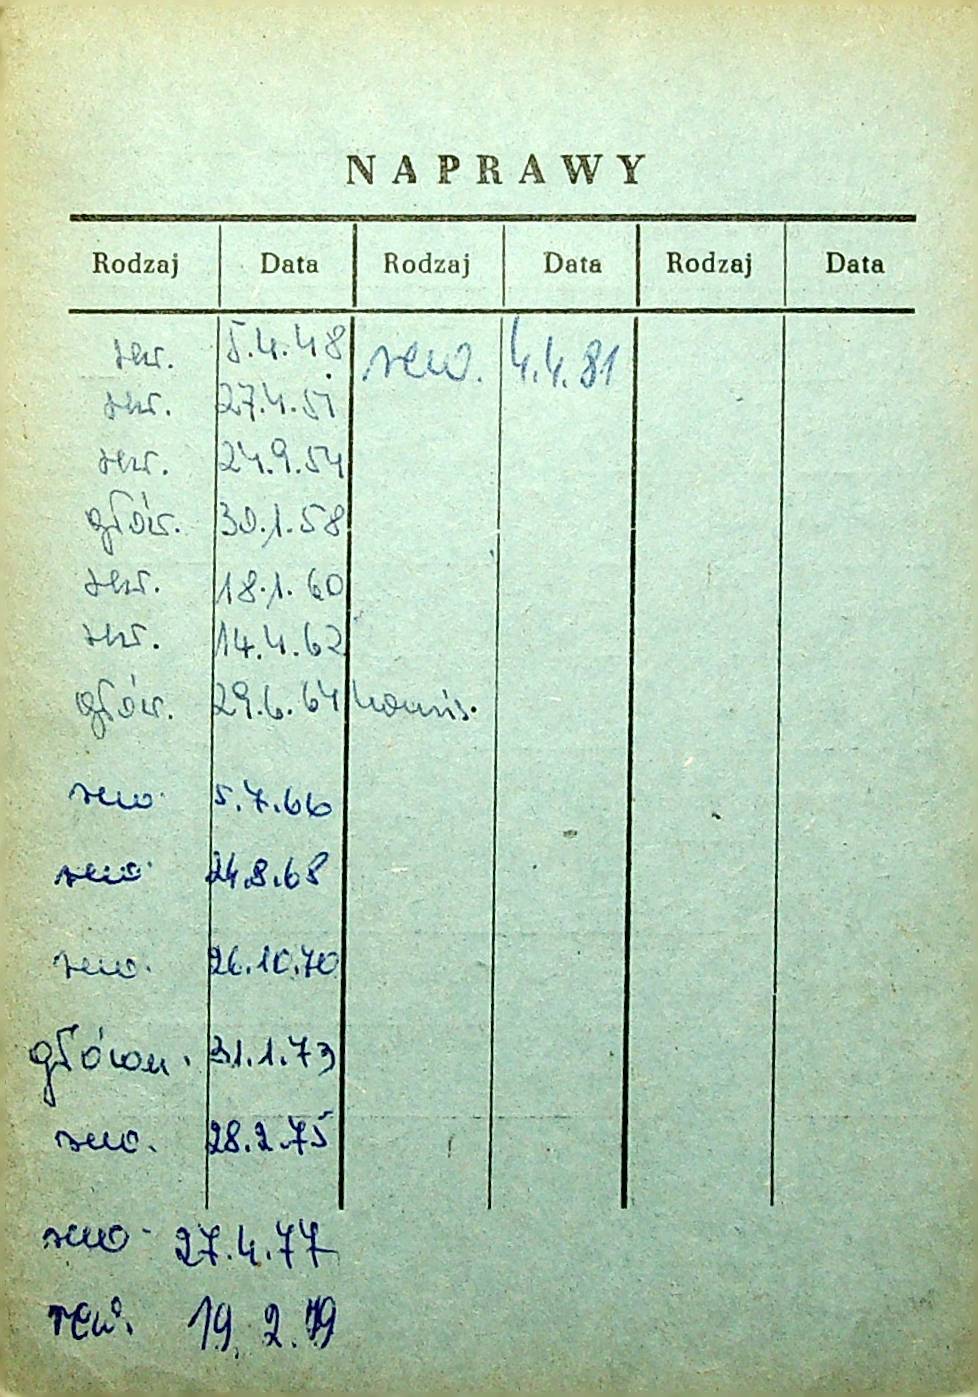 NAPRAWY
Rodzaj Data Rodzaj Data Rodzaj Data
śr. 5.4.48 rew. 4.4.81
śr. 27.4.51
śr. 24.9.54
głów. 30.1.58
śr. 18.1.60
śr. 14.4.62
głów. 29.6.64
rew. 5.7.66
rew. 24.8.68
rew. 26.10.70
główn. 31.1.73
rew. 28.2.75
rew. 27.4.77
rew. 19.2.79